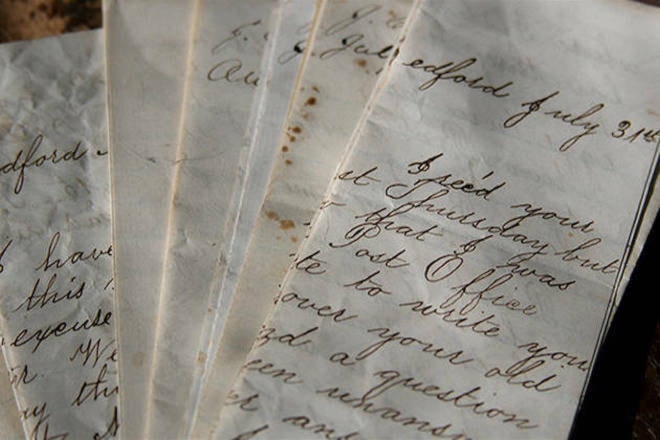 dford
have
this
excuse
We
Jul
edford July 31st
I rec'd your
st Thursday but
that I was
Post Office
te to write you
over your old
d a question
een unansw